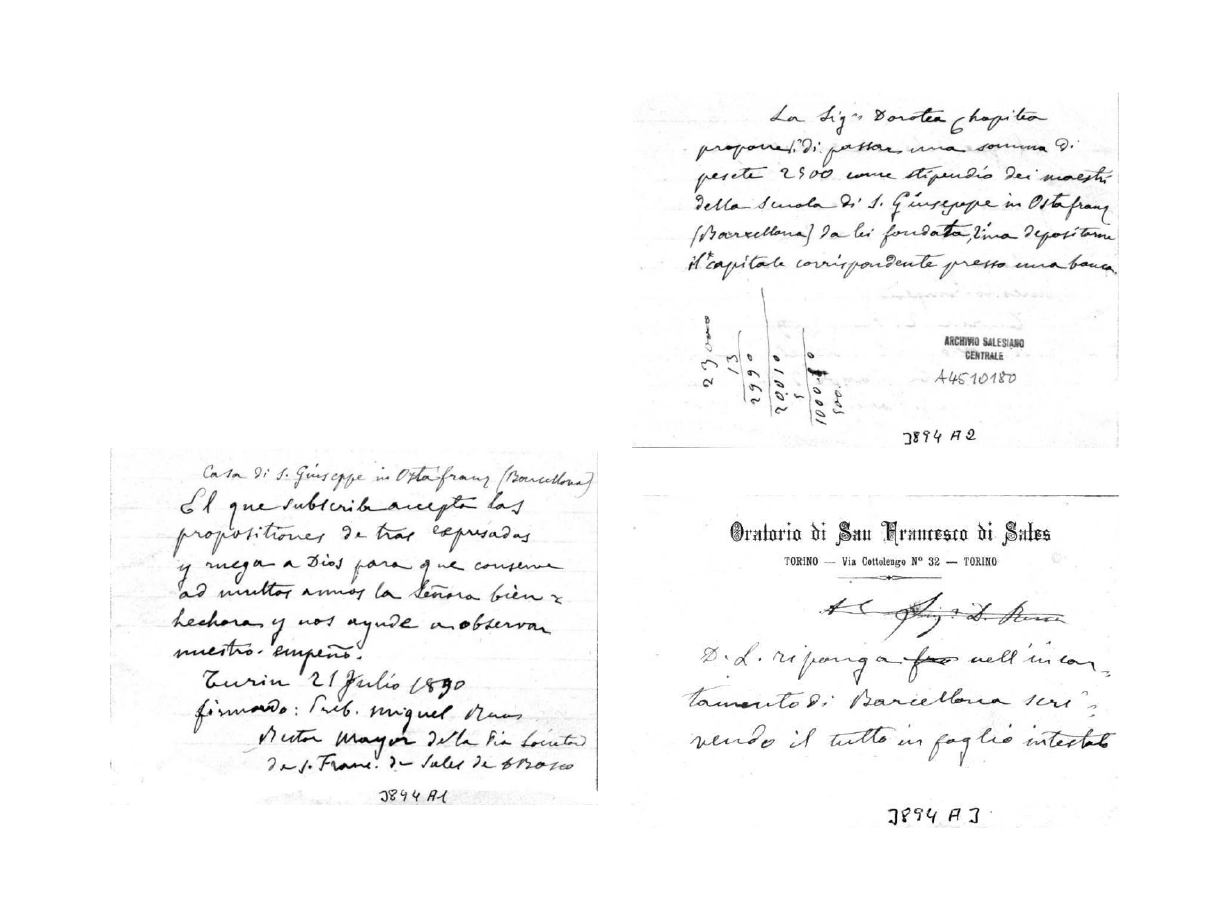 La Sig.ª Dorotea Chopitea
propone di passar una somma di
pesete 2500 come stipendio dei maestri
della Scuola di S. Giuseppe in Ostafranz
(Barcellona) da lei fondata, depositarne
il capitale corrispondente presso una banca.
23000
13
2990
20010
5
ARCHIVIO SALESIANO
CENTRALE
A4510180
3894 A2
Casa di S. Giuseppe in Ostafranz (Barcellona)
El que subscribe accepta las
propositiones de tras expresadas
y ruega a Dios para que conserve
ad multos annos la Señora bien=
hechora y nos ayude a observar
nuestro empeño.
Turin 21 Julio 1890
firmado: Miguel Rua
Rector Mayor della Pia Societad
de S. Franc. de Sales de D Bosco
3894 A1
Oratorio di San Francesco di Sales
TORINO — Via Cottolengo Nº 32 — TORINO
Al Sig. D. Rua
D. L. riponga nell'incar=
tamento di Barcellona scri=
vendo il tutto in foglio intestato
3894 A3